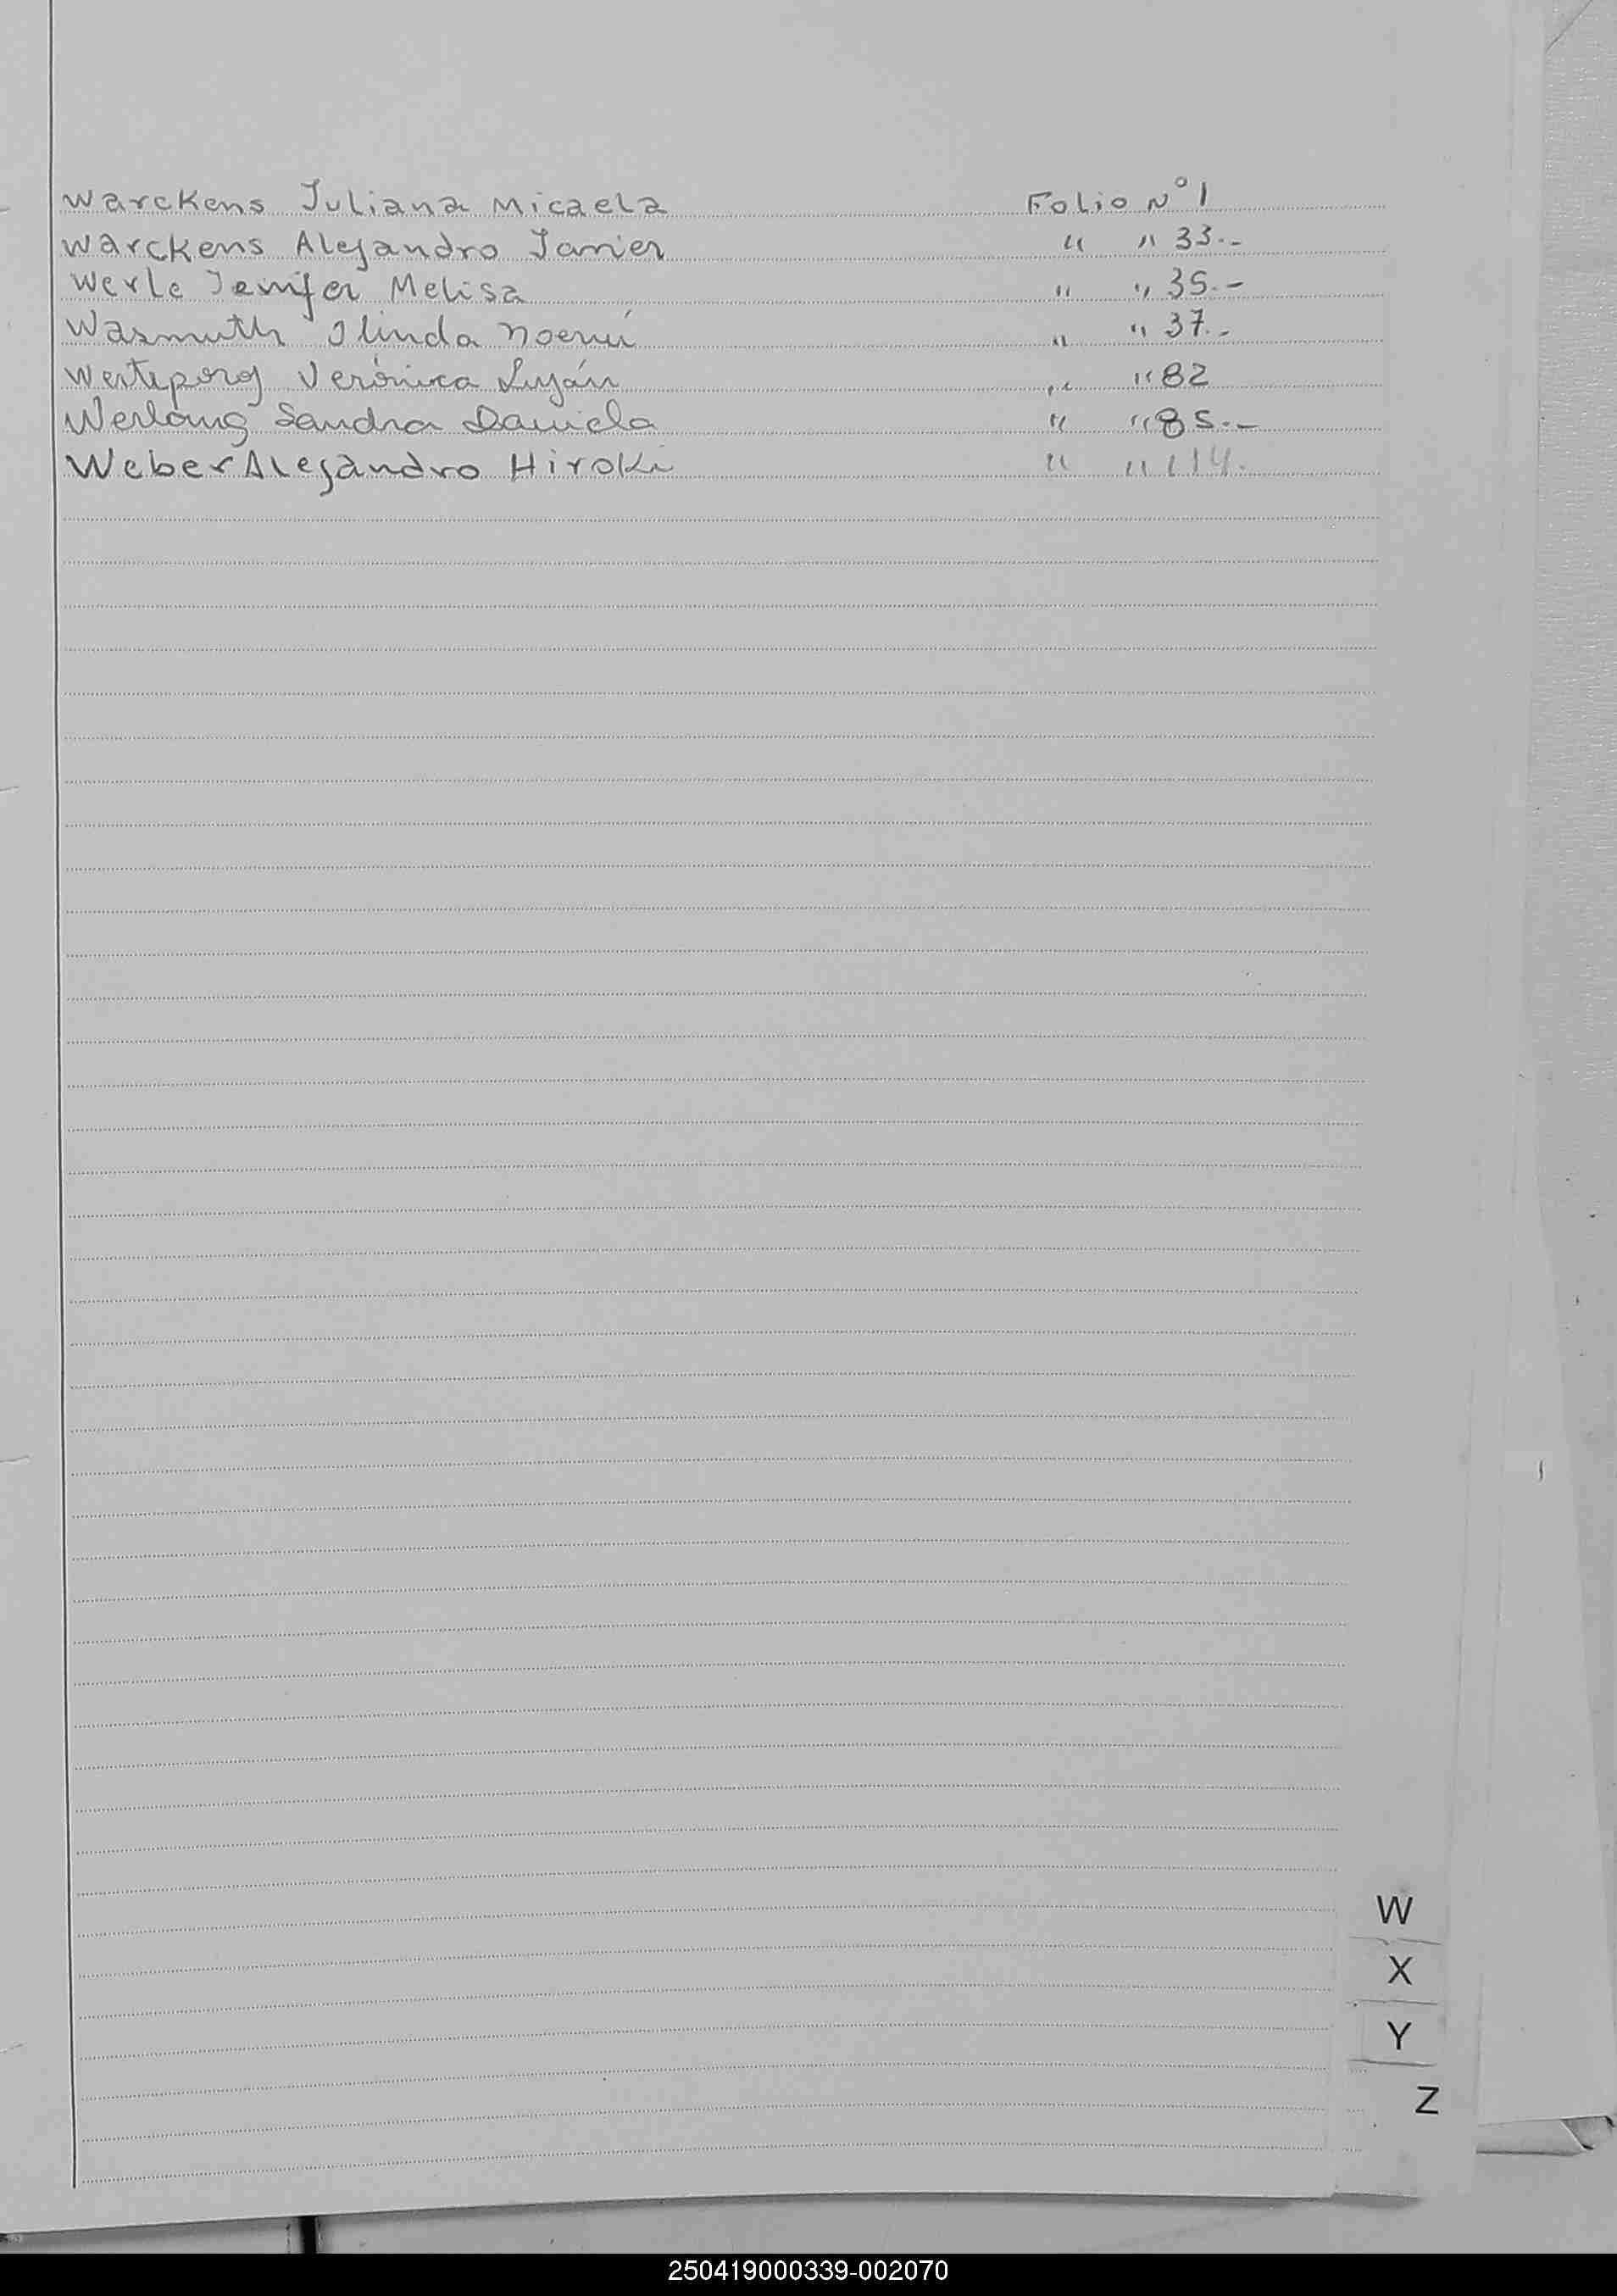 Warckens Juliana Micaela Folio N° 1
Warckens Alejandro Javier " " 33.-
Werle Jenifer Melisa " " 35.-
Wasmuth Olinda Noemí " " 37.-
Verónica Luján " " 82
Werlang Sandra Daniela " " 85.-
Weber Alejandro Hiroki " " 114.
W
X
Y
Z
250419000339-002070